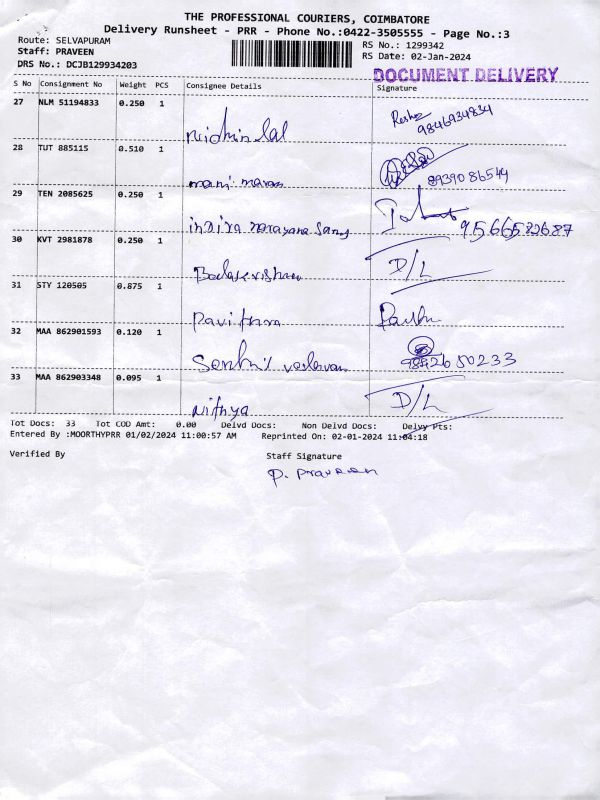 THE PROFESSIONAL COURIERS, COIMBATORE
Delivery Runsheet - PRR - Phone No.:0422-3505555 - Page No.:3
Route: SELVAPURAM
Staff: PRAVEEN
DRS No.: DCJB129934203
RS No.: 1299342
RS Date: 02-Jan-2024
DOCUMENT DELIVERY
S No Consignment No Weight PCS Consignee Details Signature
27 NLM 51194833 0.250 1 nidhin lal 9846934834
28 TUT 885115 0.510 1 mani maran 8939086549
29 TEN 2085625 0.250 1 indira narayana samy 9566582687
30 KVT 2981878 0.250 1 D/L
31 STY 120505 0.875 1 Pavithra
32 MAA 862901593 0.120 1 Senthil vadavan 9842650233
33 MAA 862903348 0.095 1 Nithya D/L
Tot Docs: 33 Tot COD Amt: 0.00 Delvd Docs: Non Delvd Docs: Delvy Pts:
Entered By :MOORTHYPRR 01/02/2024 11:00:57 AM Reprinted On: 02-01-2024 11:04:18
Verified By Staff Signature
P. Praveen